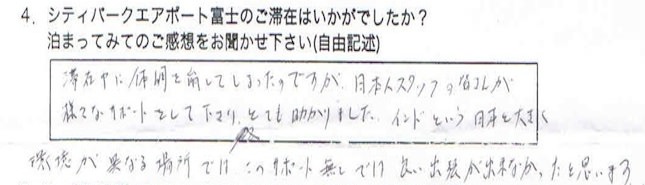 4. シティパークエアポート富士のご滞在はいかがでしたか？
泊まってみてのご感想をお聞かせ下さい(自由記述)
滞在中に体調を崩してしまったのですが、日本人スタッフの皆さんが
様々なサポートをして下さり、とても助かりました。インドという日本と大きく
環境が異なる場所では、このサポート無しでは良い出張が出来なかったと思います